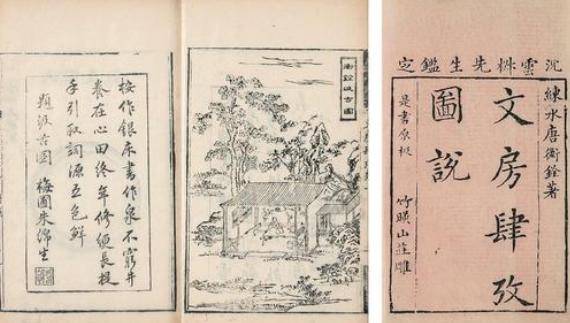 沈雲椒先生鑑定
練水唐衡銓著
文房肆攷
圖說
是書原板 竹暎山莊雕
衡銓汲古圖
桉作銀床書作泉不窮井
養在心田終年修綆長提
手引取詞源五色鮮
題汲古圖 梅圃朱綿生